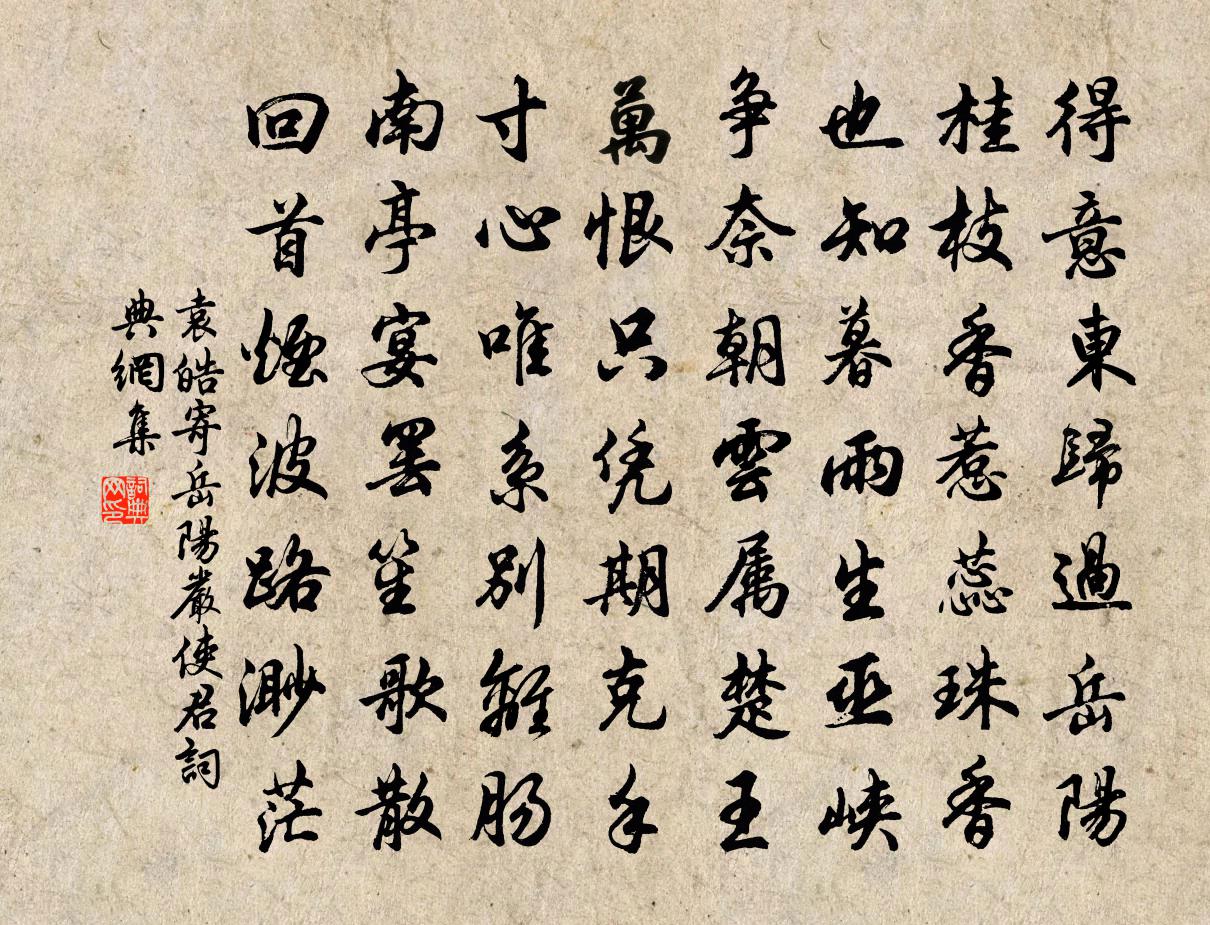 得意東歸過岳陽
桂枝香惹蕊珠香
也知暮雨生巫峽
爭奈朝雲属楚王
萬恨只凭期克手
寸心唯系別離腸
南亭宴罢笙歌散
回首煙波路渺茫
袁皓寄岳陽嚴使君詞
典網集
詞典
网印